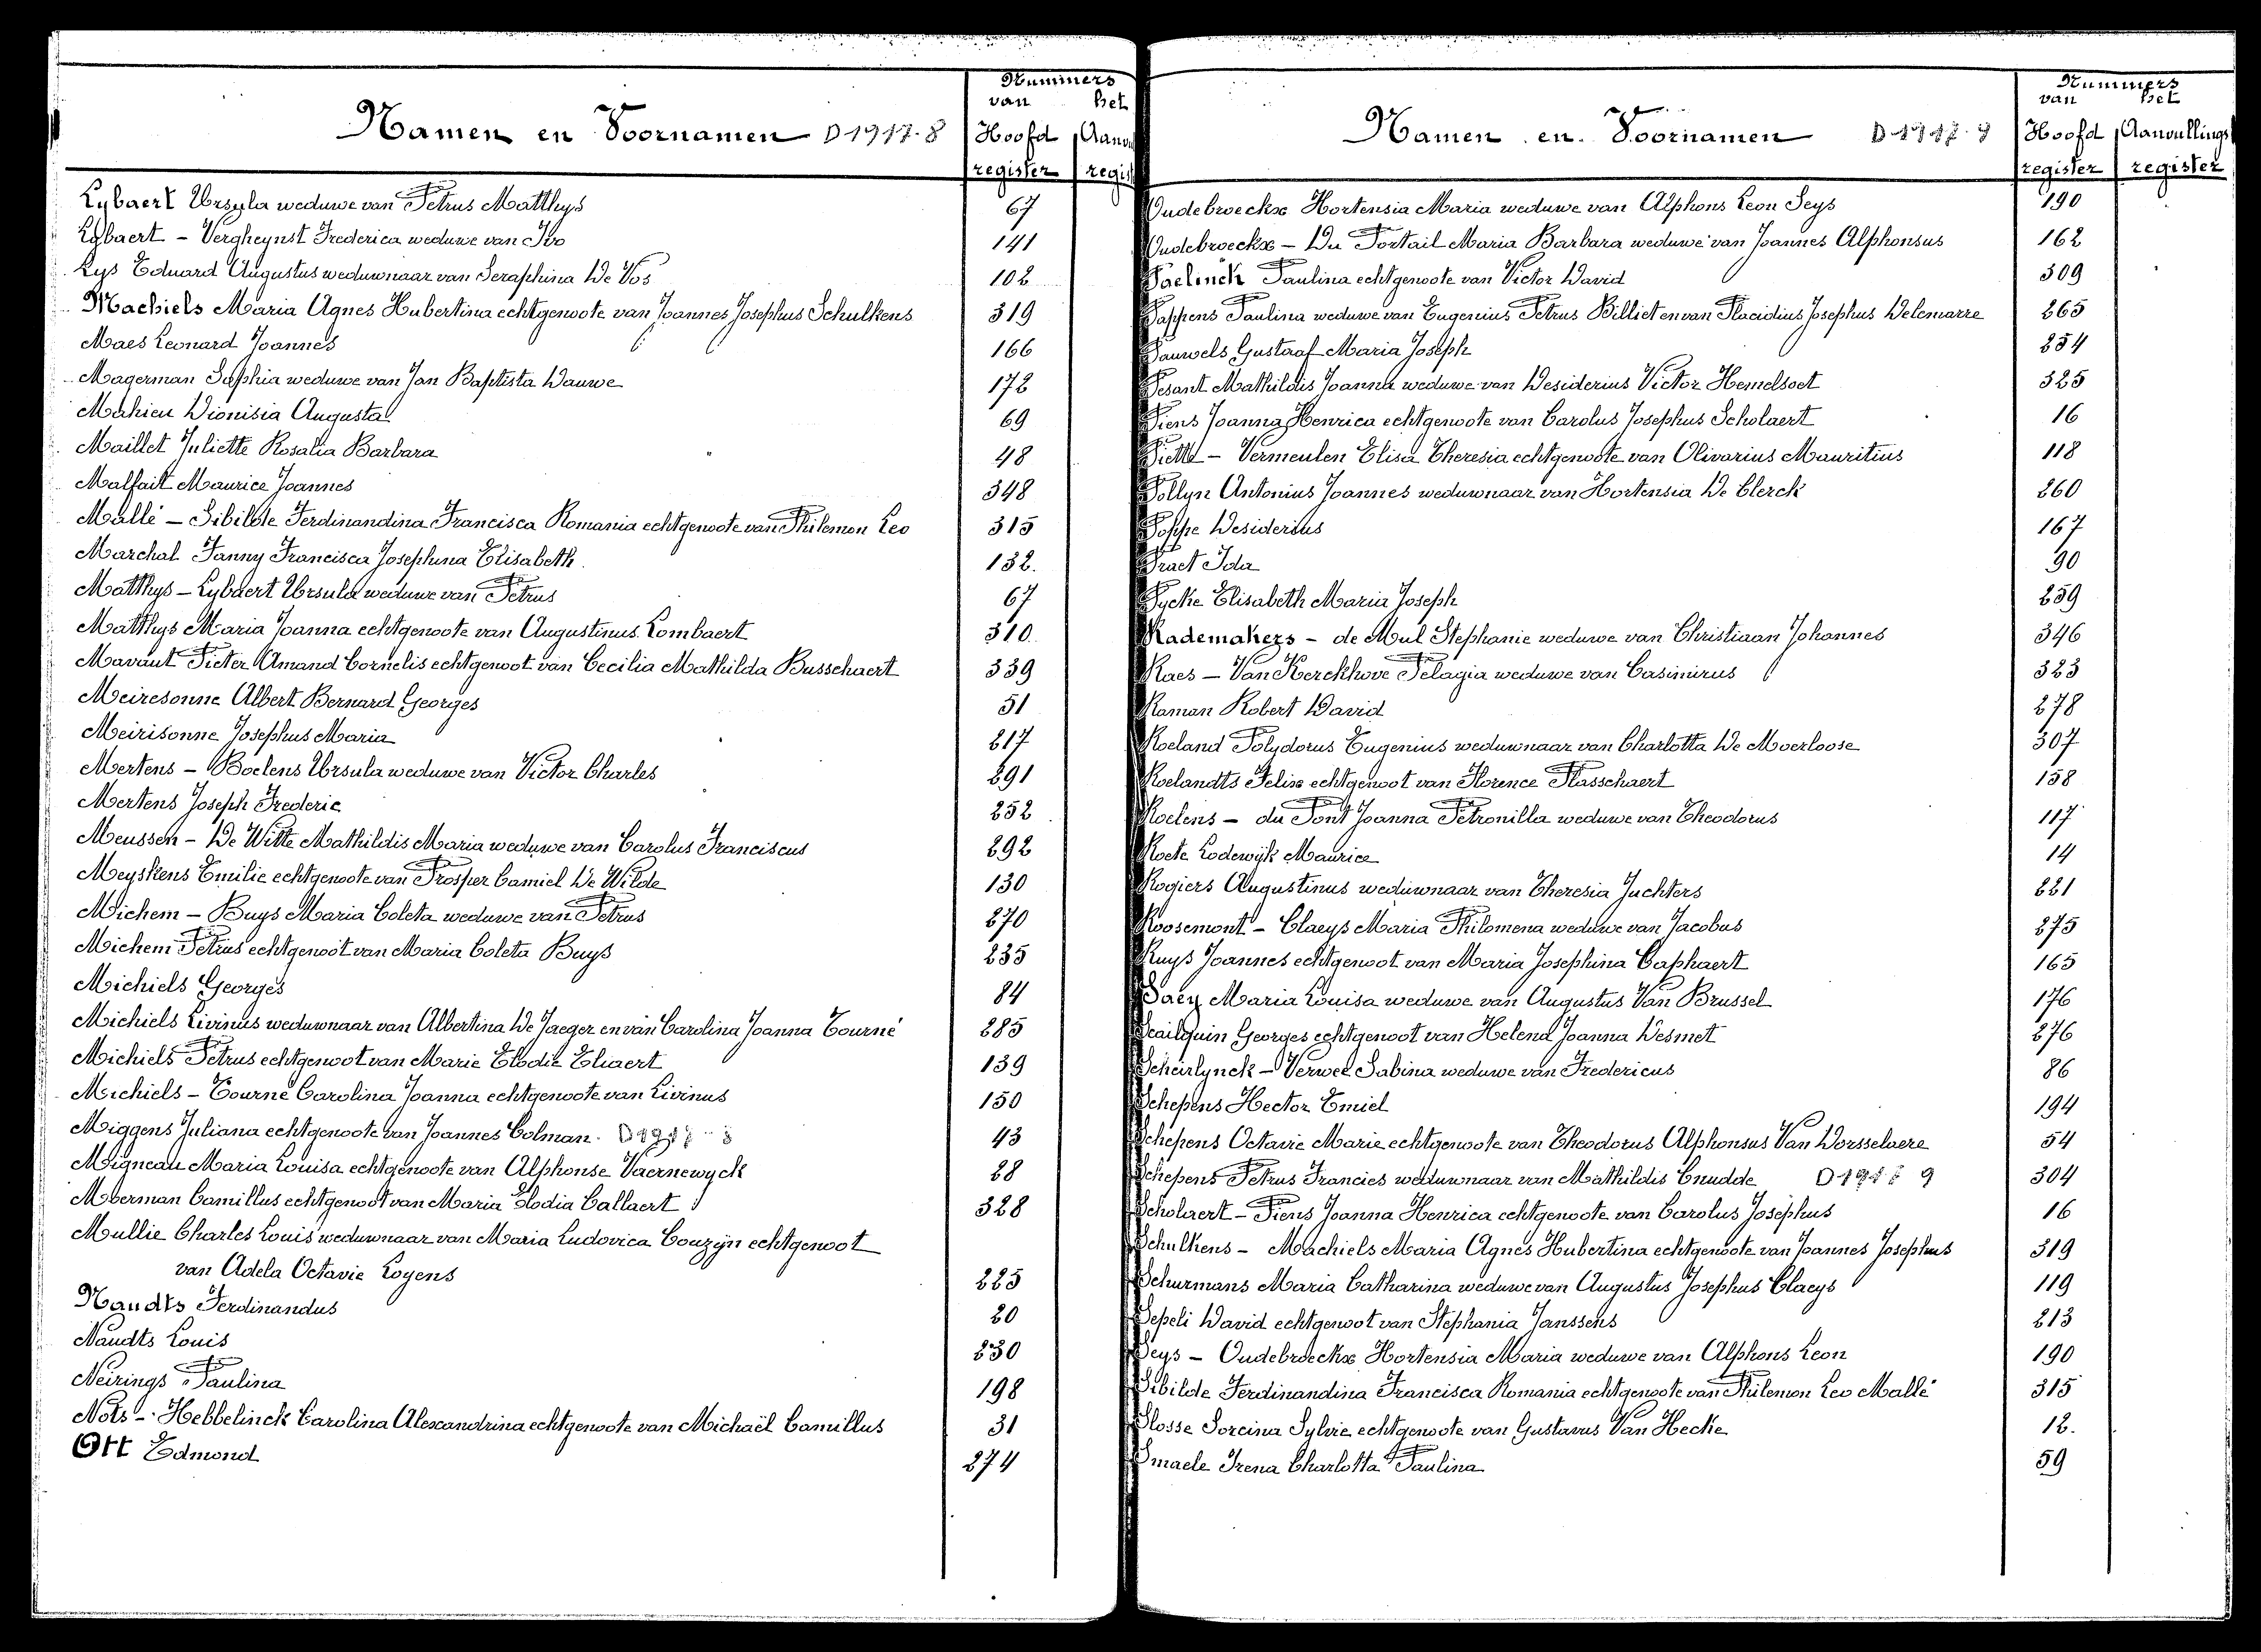 Nummers
van het
Namen en Voornamen D 1917-8 Hoofd Aanv
register regis
Lybaert Ursula weduwe van Petrus Matthys 67
Lybaert - Vergheynst Frederica weduwe van Ivo 141
Lys Eduard Augustus weduwnaar van Seraphina De Vos 102
Machiels Maria Agnes Hubertina echtgenoote van Joannes Josephus Schulkens 319
Maes Leonard Joannes 166
Magerman Sophia weduwe van Jan Baptista Dauwe 172
Mahieu Dionisia Augusta 69
Maillet Juliette Rosalia Barbara 48
Malfait Maurice Joannes 348
Mallé - Sibilde Ferdinandina Francisca Romania echtgenoote van Philemon Leo 315
Marchal Fanny Francisca Josephina Elisabeth 132.
Matthys - Lybaert Ursula weduwe van Petrus 67
Matthys Maria Joanna echtgenoote van Augustinus Lombaert 310
Mavaut Pieter Amand Cornelis echtgenoot van Cecilia Mathilda Busschaert 339
Meiresonne Albert Bernard Georges 51
Meirisonne Josephus Maria 217
Mertens - Boelens Ursula weduwe van Victor Charles 291
Mertens Joseph Frederic 252
Meussen - De Witte Mathildis Maria weduwe van Carolus Franciscus 292
Meyskens Emilie echtgenoote van Prosper Camiel De Wilde 130
Michem - Buys Maria Coleta weduwe van Petrus 270
Michem Petrus echtgenoot van Maria Coleta Buys 235
Michiels Georges 84
Michiels Livinus weduwnaar van Albertina De Jaeger en van Carolina Joanna Tourné 285
Michiels Petrus echtgenoot van Marie Elodie Eliaert 139
Michiels - Tourné Carolina Joanna echtgenoote van Livinus 150
Miggens Juliana echtgenoote van Joannes Colman. D 1917-8 43
Migneau Maria Louisa echtgenoote van Alphonse Vaernewyck 28
Moerman Camillus echtgenoot van Maria Elodia Callaert 328
Mullie Charles Louis weduwnaar van Maria Ludovica Couzijn echtgenoot
van Adela Octavie Loyens 225
Naudts Ferdinandus 20
Naudts Louis 230
Neirings Paulina 198
Nots - Hebbelinck Carolina Alexandrina echtgenoote van Michaël Camillus 31
Ott Edmond 274
Nummers
van het
Namen en Voornamen D 1917-9 Hoofd Aanvullings
register register
Oudebroeckx Hortensia Maria weduwe van Alphons Leon Seys 190
Oudebroeckx - Du Portail Maria Barbara weduwe van Joannes Alphonsus 162
Paelinck Paulina echtgenoote van Victor David 309
Pappens Paulina weduwe van Eugenius Petrus Billiet en van Placidius Josephus Delemarre 265
Pauwels Gustaaf Maria Joseph 254
Pesant Mathildis Joanna weduwe van Desiderius Victor Hemelsoet 325
Piens Joanna Henrica echtgenoote van Carolus Josephus Scholaert 16
Piette - Vermeulen Elisa Theresia echtgenoote van Olivarius Mauritius 118
Pollyn Antonius Joannes weduwnaar van Hortensia De Clerck 260
Poppe Desiderius 167
Praet Ida 90
Pycke Elisabeth Maria Joseph 259
Rademakers - de Mul Stephanie weduwe van Christiaan Johannes 346
Raes - Van Kerckhove Pelagia weduwe van Casimirus 323
Raman Robert David 278
Roeland Polydorus Eugenius weduwnaar van Charlotta De Moerloose 307
Roelandts Felix echtgenoot van Florence Plasschaert 158
Roelens - du Pont Joanna Petronilla weduwe van Theodorus 117
Roete Lodewijk Maurice 14
Rogiers Augustinus weduwnaar van Theresia Juchters 221
Roosemont - Claeys Maria Philomena weduwe van Jacobus 275
Ruys Joannes echtgenoot van Maria Josephina Caphaert 165
Saey Maria Louisa weduwe van Augustus Van Brussel 176
Scailquin Georges echtgenoot van Helena Joanna Desmet 276
Scheirlynck - Verwee Sabina weduwe van Fredericus 86
Schepens Hector Emiel 194
Schepens Octavie Marie echtgenoote van Theodorus Alphonsus Van Dorsselaere 54
Schepens Petrus Francies weduwnaar van Mathildis Cnudde D 1918 9 304
Scholaert - Piens Joanna Henrica echtgenoote van Carolus Josephus 16
Schulkens - Machiels Maria Agnes Hubertina echtgenoote van Joannes Josephus 319
Schurmans Maria Catharina weduwe van Augustus Josephus Claeys 119
Sepeli David echtgenoot van Stephania Janssens 213
Seys - Oudebroeckx Hortensia Maria weduwe van Alphons Leon 190
Sibilde Ferdinandina Francisca Romania echtgenoote van Philemon Leo Mallé 315
Slosse Sorcina Sylvie echtgenoote van Gustavus Van Hecke 12.
Smaele Irena Charlotta Paulina 59